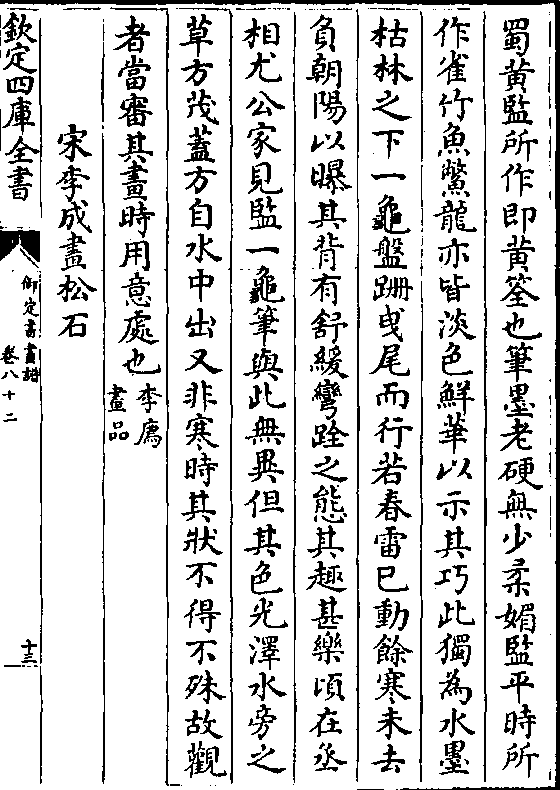 蜀黄監所作即黄筌也筆墨老硬無少柔媚監平時所
作雀竹魚鱉龍亦皆淡色鮮華以示其巧此獨為水墨
枯林之下一龜盤跚曵尾而行若春雷已動餘寒未去
負朝陽以曝其背有舒緩彎跧之態其趣甚樂頃在丞
相尤公家見監一龜筆與此無異但其色光澤水旁之
草方茂蓋方自水中出又非寒時其狀不得不殊故觀
者當審其畫時用意處也李廌
畫品
宋李成畫松石
欽定四庫全書
御定書畫譜
卷八十二
十三